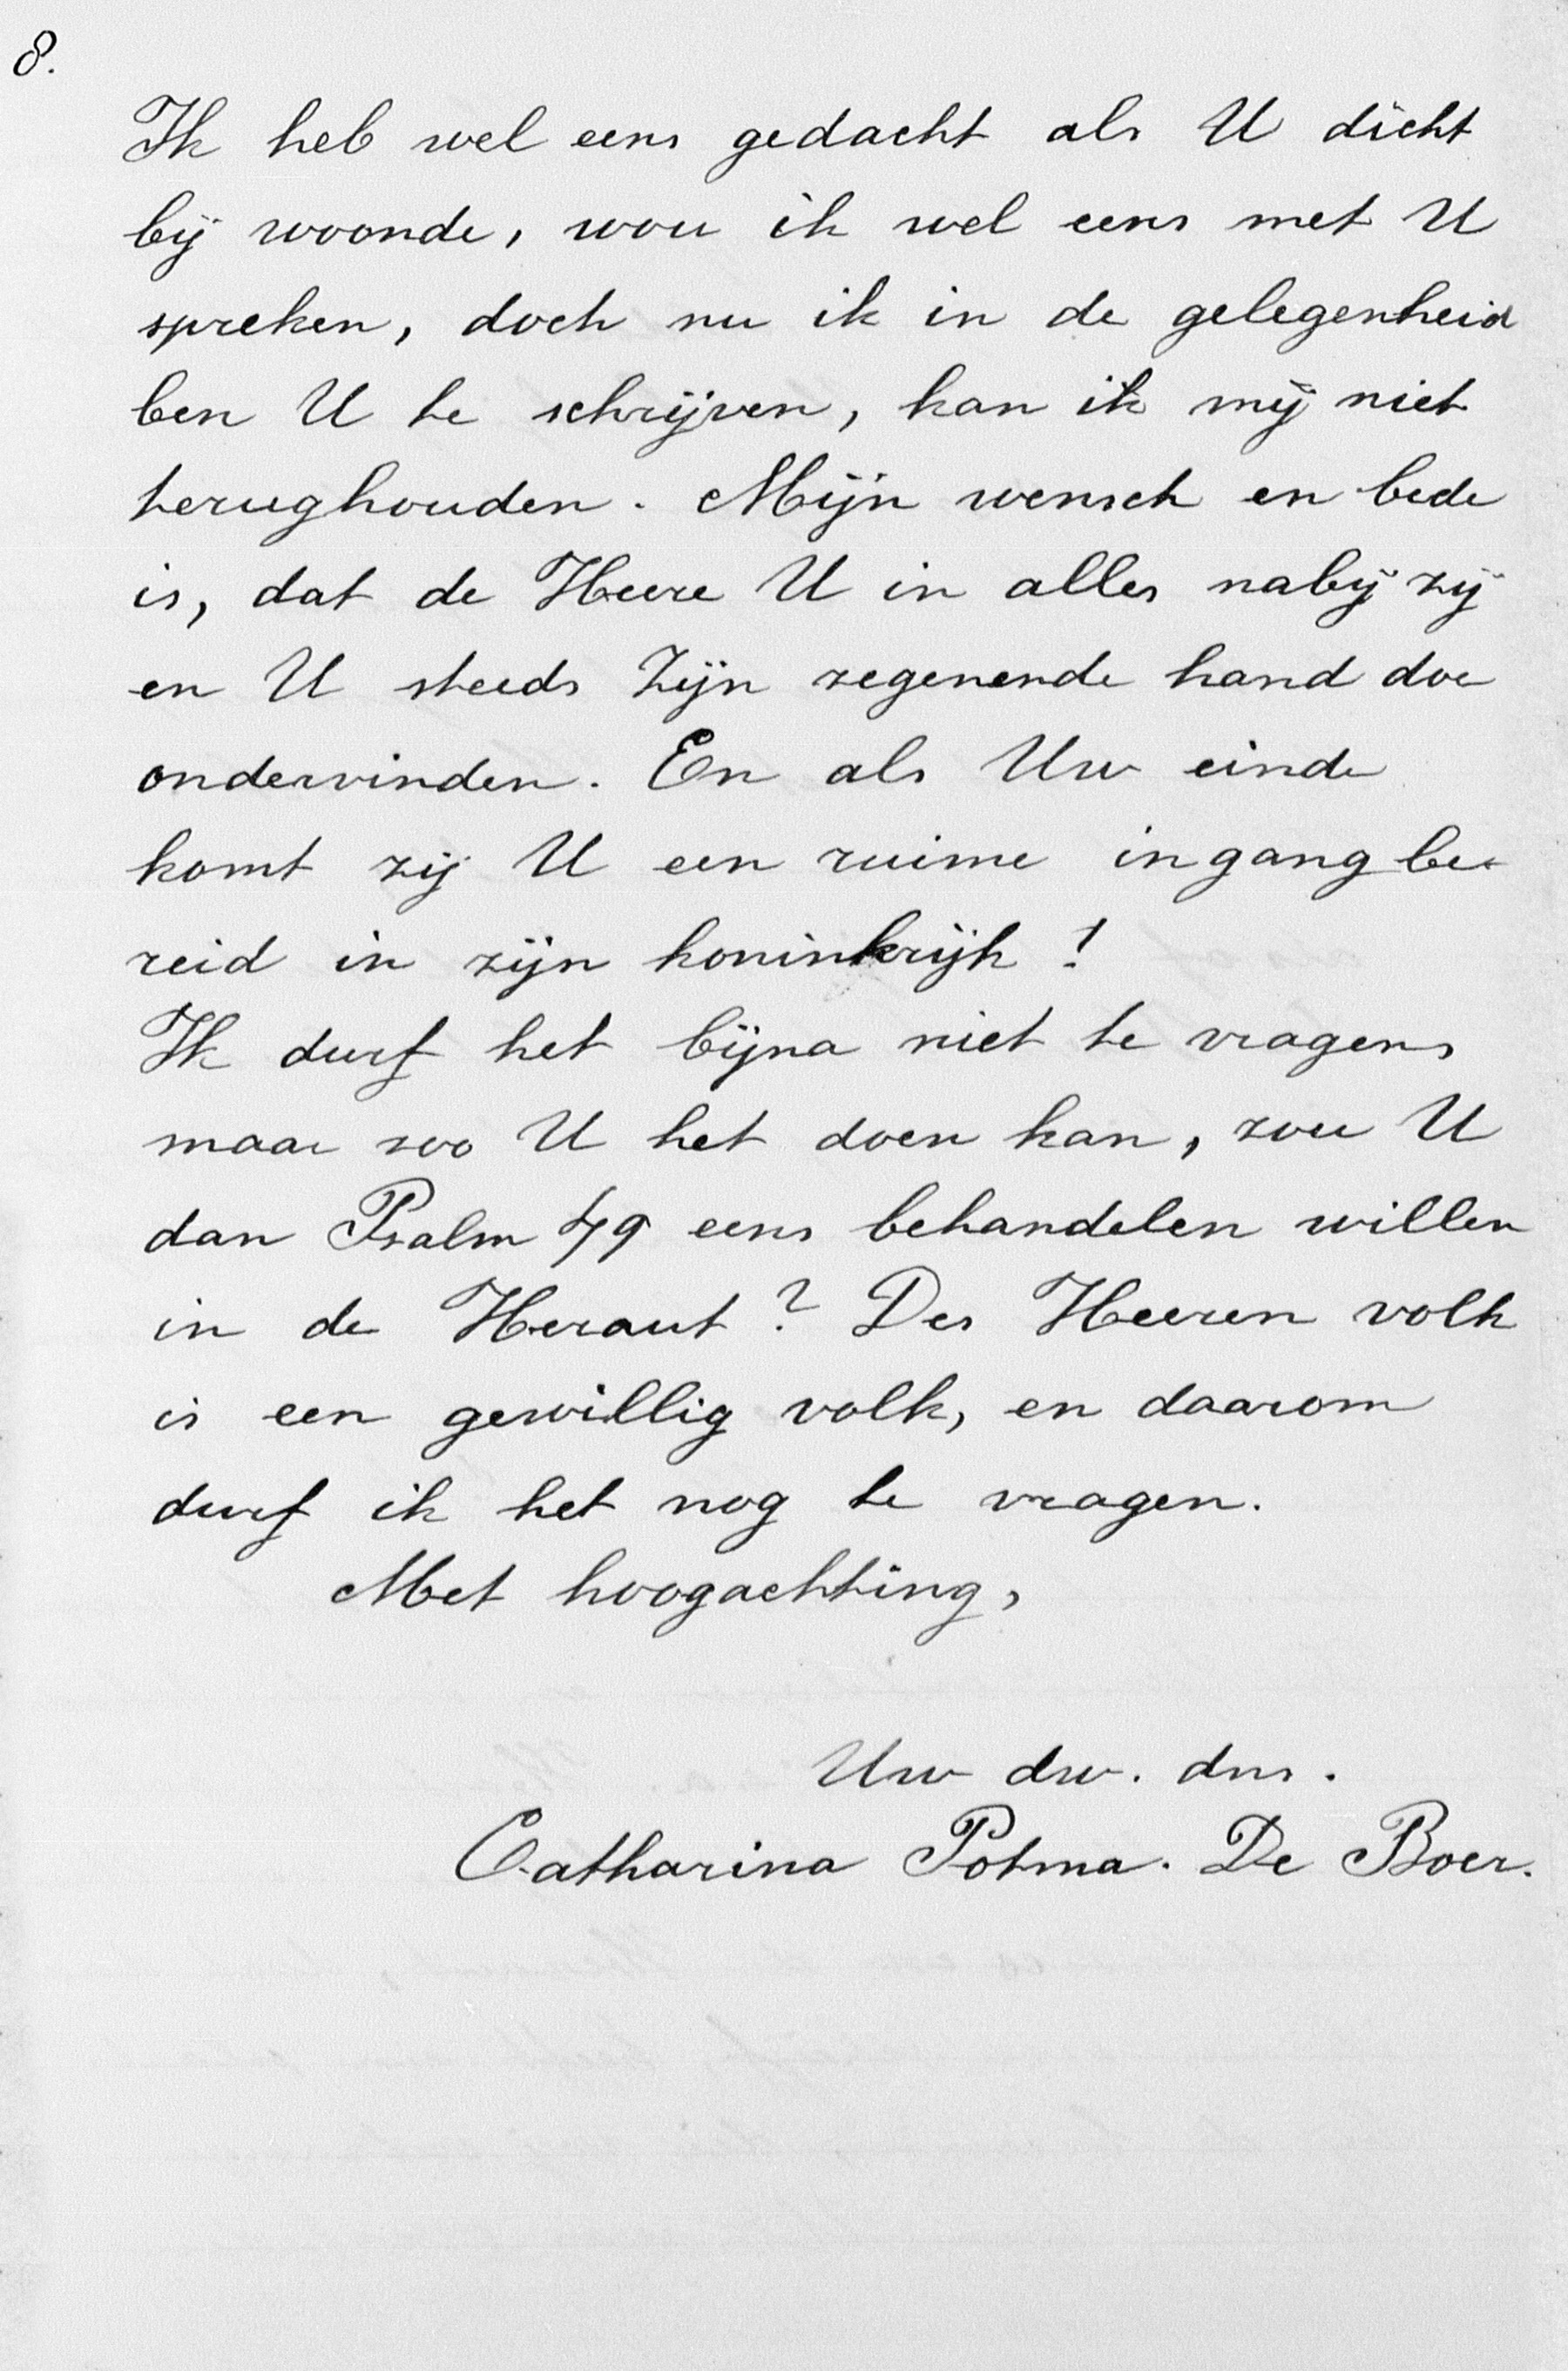 8.
Ik heb wel eens gedacht als U dicht
bij woonde, wou ik wel eens met U
spreken, doch nu ik in de gelegenheid
ben U te schrijven, kan ik mij niet
terughouden. Mijn wensch en bede
is, dat de Heere U in alles nabij zij
en U steeds Zijn zegenende hand doe
ondervinden. En als Uw einde
komt zij U een ruime ingang be-
reid in zijn koninkrijk!
Ik durf het bijna niet te vragen,
maar zoo U het doen kan, zou U
dan Psalm 49 eens behandelen willen
in de Heraut? Des Heeren volk
is een gewillig volk, en daarom
durf ik het nog te vragen.
Met hoogachting,
Uw dw. dns.
Catharina Potma. De Boer.